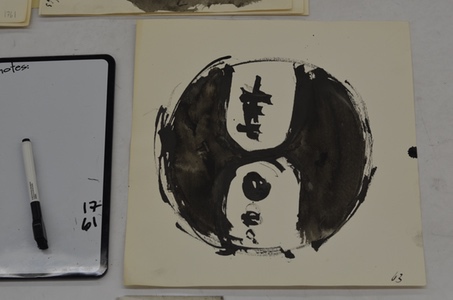 notes:
17
61
63